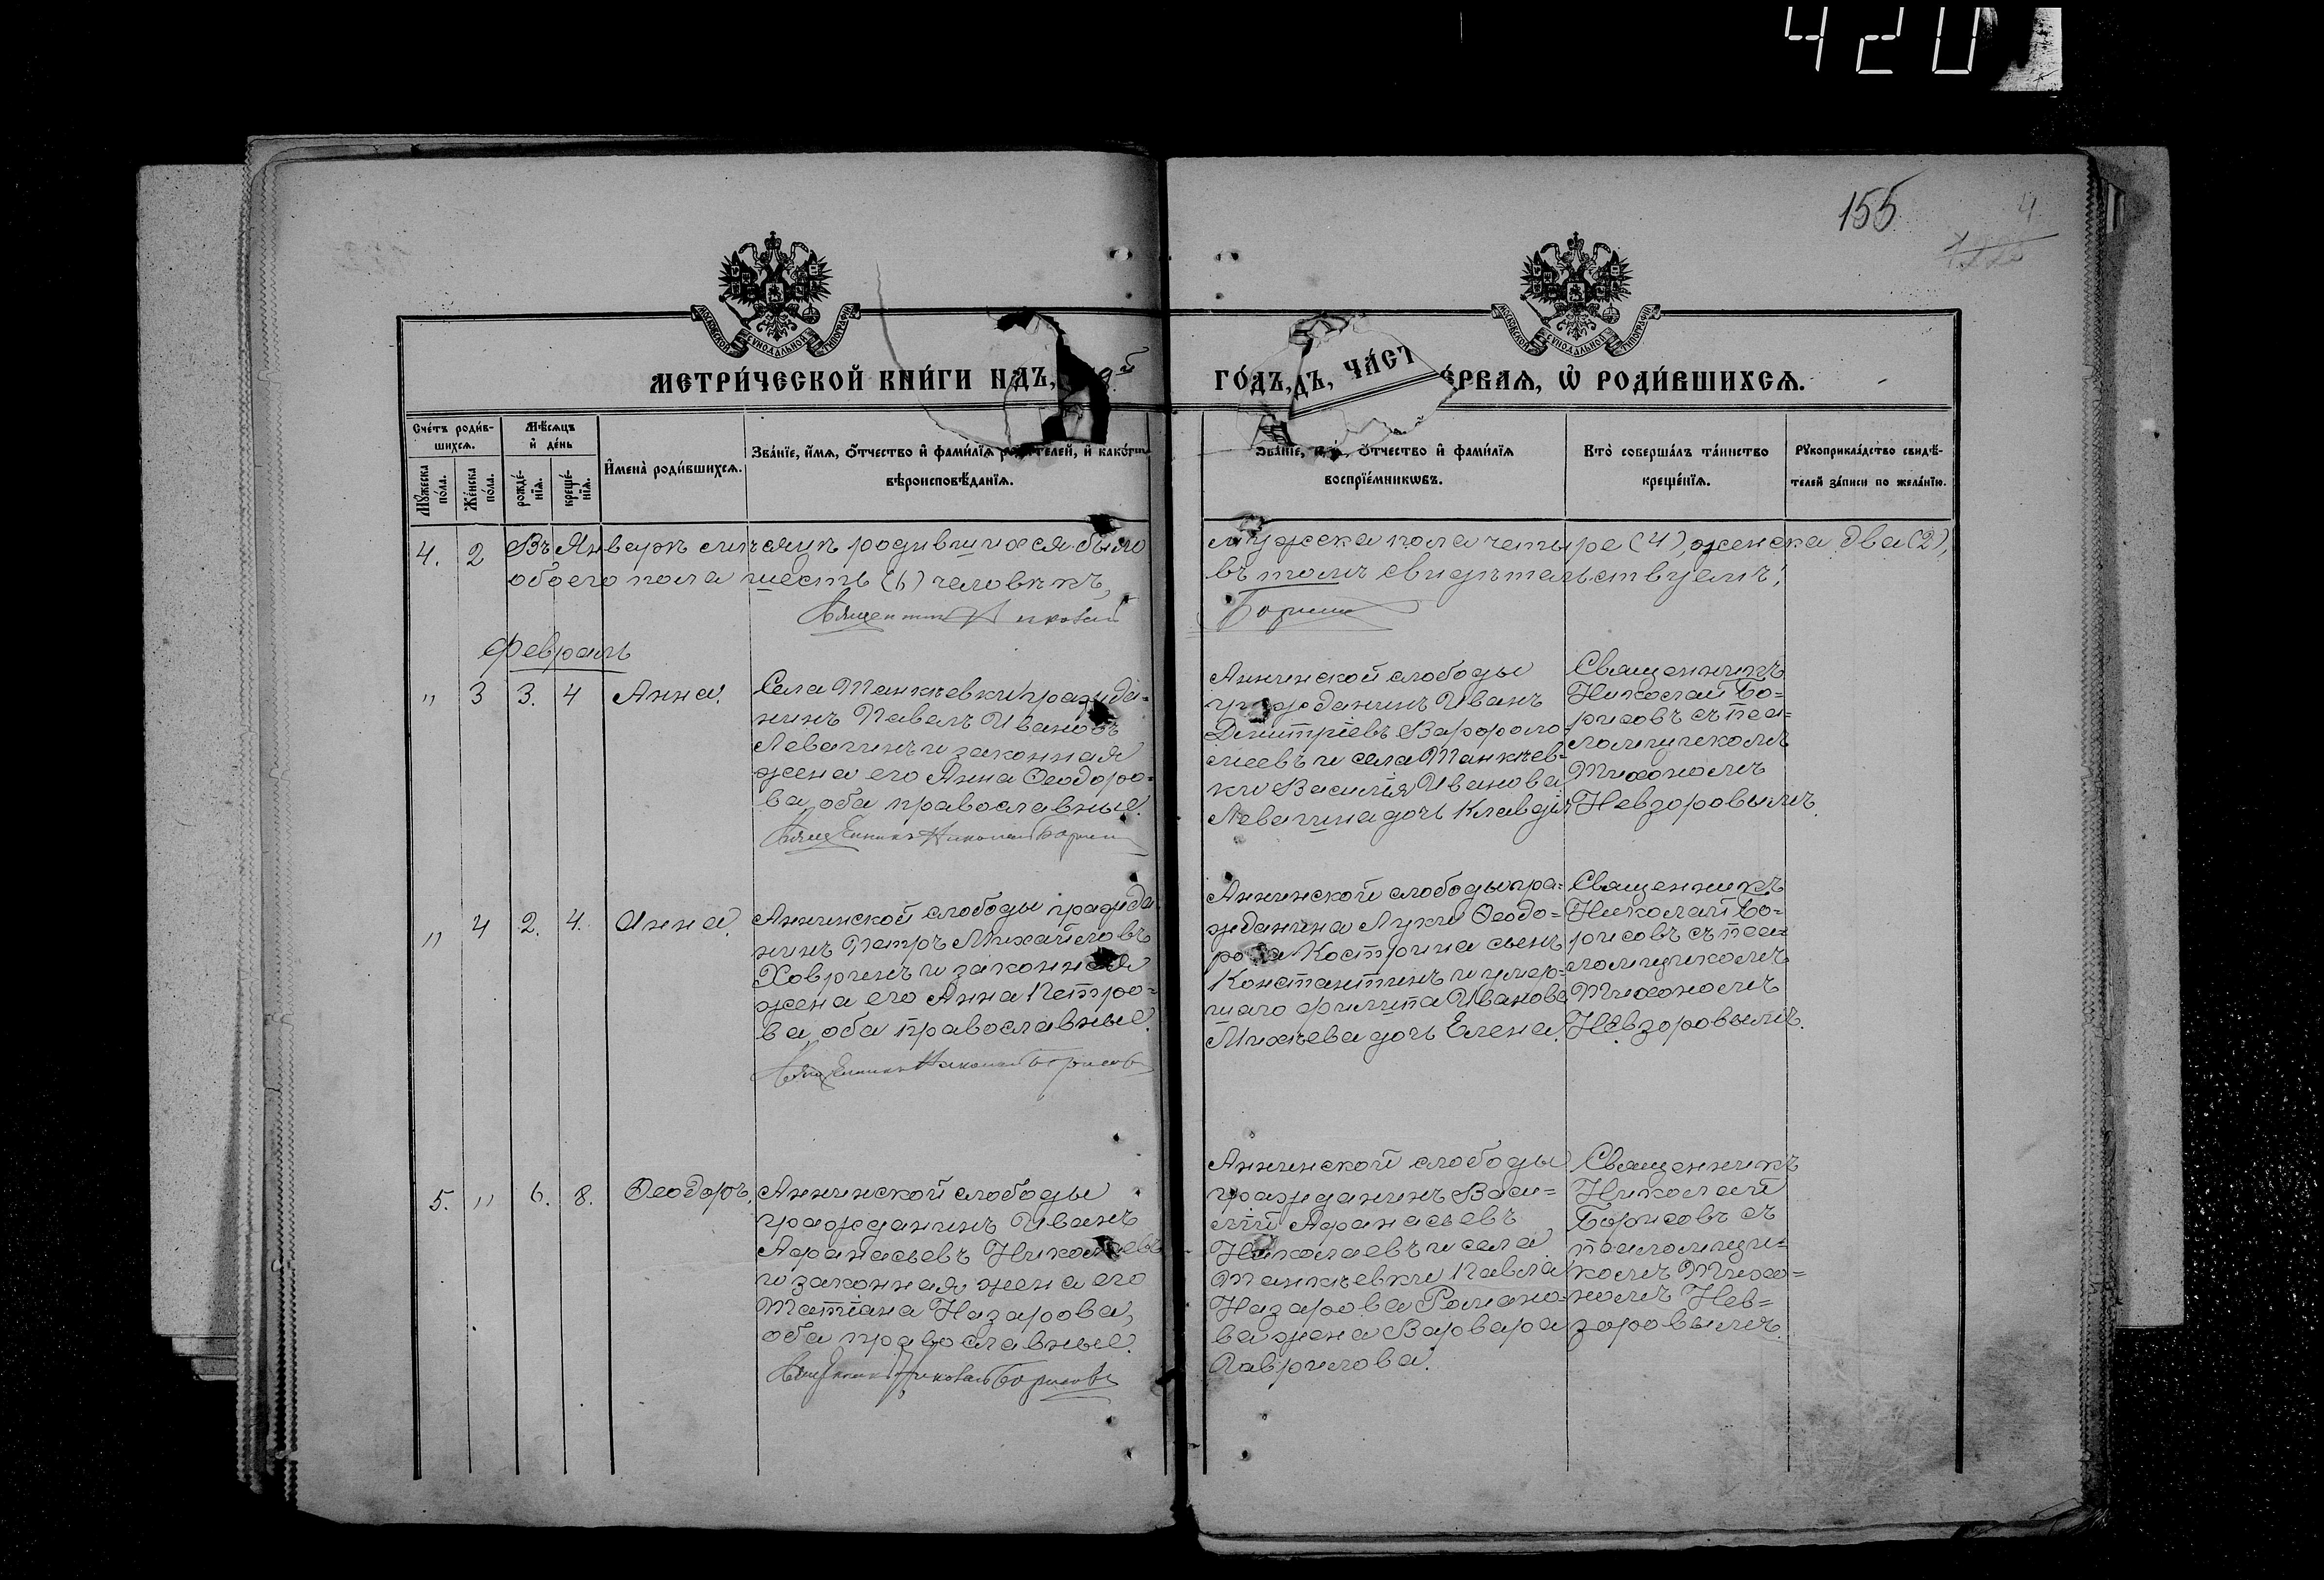 420
155
4
МОСКОВСКОЙ СѴНОДАЛЬНОЙ ТИПОГРАФІИ
МОСКОВСКОЙ СѴНОДАЛЬНОЙ ТИПОГРАФІИ
МЕТРИ́ЧЕСКОЙ КНИ́ГИ НА̀ 9й
ГО́ДЪ, ДЪ, ЧА́СТ Е́РВАѦ, Ѡ҆ РОДИ́ВШИХСѦ.
Сче́тъ роди́в-
шихсѧ.
Мꙋ́жеска по́ла.
Же́нска по́ла.
Мѣ́сѧцъ
и҆ де́нь
рожде́-нїѧ.
креще́-нїѧ.
И҆мена̀ роди́вшихсѧ.
Зва́нїе, и҆́мѧ, ѻ҆́тчество и҆ фами́лїѧ родителей, и҆ како́гѡ
вѣроисповѣ́данїѧ.
Зва́нїе, ѻ҆́тчество и҆ фами́лїѧ
воспрїе́мникѡвъ.
Кто̀ соверша́лъ та́инство
креще́нїѧ.
Рꙋкоприкла́дство свидѣ́-
телей за́писи по жела́нїю.
4. 2 Въ Январѣ мѣсяцѣ родившихся было
обоего пола шесть (6) человѣкъ,
Священник Николай
мужеска пола четыре (4), женска два (2),
въ томъ свидѣтельствуемъ:
Борисов
Февраль
" 3 3. 4 Анна.
Села Танкѣевки гражда-
нинъ Павелъ Ивановъ
Левагинъ и законная
жена его Анна Ѳеодоро-
ва, оба православные.
Священник Николай Борисов
Аннинской слободы
гражданинъ Иванъ
Димитріевъ Варфоло-
меевъ и села Танкѣев-
ки Василія Иванова
Левагина дочь Клавдія
Священникъ
Николай Бо-
рисовъ съ пса-
ломщикомъ
Тихономъ
Невзоровымъ.
" 4 2. 4. Анна.
Аннинской слободы гражда-
нинъ Петръ Михайловъ
Ховринъ и законная
жена его Анна Петро-
ва, оба православные.
Священник Николай Борисовъ
Аннинской слободы гра-
жданина Луки Ѳеодо-
рова Кострина сынъ
Константинъ и умер-
шаго Филиппа Иванова
Михѣева дочь Елена.
Священникъ
Николай Бо-
рисовъ съ пса-
ломщикомъ
Тихономъ
Невзоровымъ.
5. " 6. 8. Ѳеодоръ.
Аннинской слободы
гражданинъ Иванъ
Аѳанасьевъ Николаевъ
и законная жена его
Татіана Назарова,
оба православные.
Священник Николай Борисовъ
Аннинской слободы
гражданинъ Васи-
лій Аѳанасьевъ
Николаевъ и села
Танкѣевки Павла
Назарова Романо-
ва жена Варвара
Гаврилова.
Священникъ
Николай
Борисовъ съ
псаломщи-
комъ Тихо-
номъ Нев-
зоровымъ.